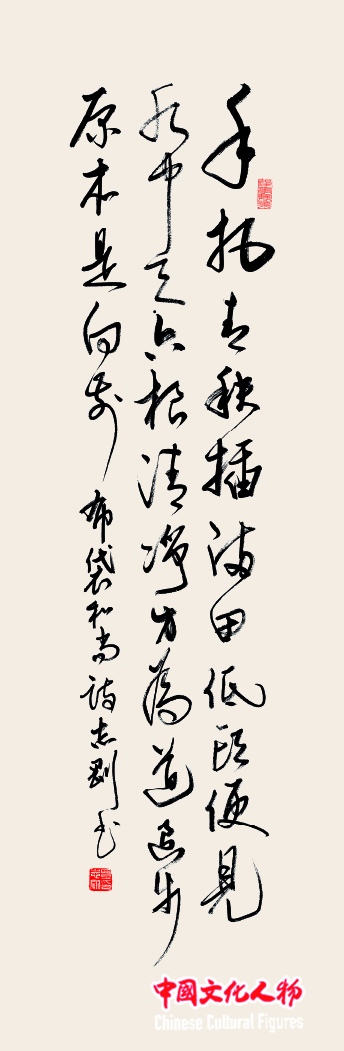 手把青秧插滿田低頭便見
水中天六根清淨方為道退步
原本是向前 布袋和尚詩志剛書
中國文化人物
Chinese Cultural Figures